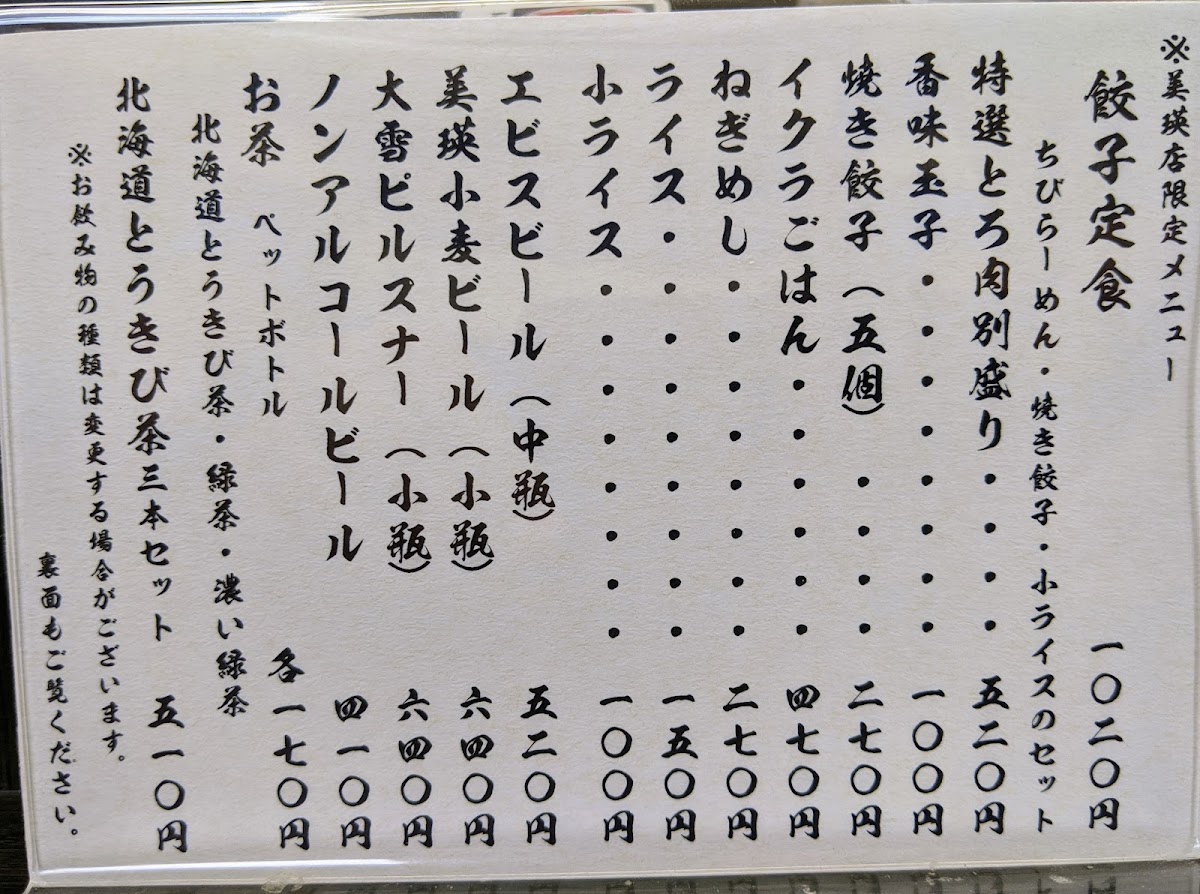 ※美瑛店限定メニュー
餃子定食 一〇二〇円
ちびらーめん・焼き餃子・小ライスのセット
特選とろ肉別盛り・・・・五二〇円
香味玉子・・・・・・・・一〇〇円
焼き餃子（五個）・・・・二七〇円
イクラごはん・・・・・・四七〇円
ねぎめし・・・・・・・・二七〇円
ライス・・・・・・・・・一五〇円
小ライス・・・・・・・・一〇〇円
エビスビール（中瓶） 五二〇円
美瑛小麦ビール（小瓶） 六四〇円
大雪ピルスナー（小瓶） 六四〇円
ノンアルコールビール 四一〇円
お茶 ペットボトル 各一七〇円
北海道とうきび茶・緑茶・濃い緑茶
北海道とうきび茶三本セット 五一〇円
※お飲み物の種類は変更する場合がございます。
裏面もご覧ください。